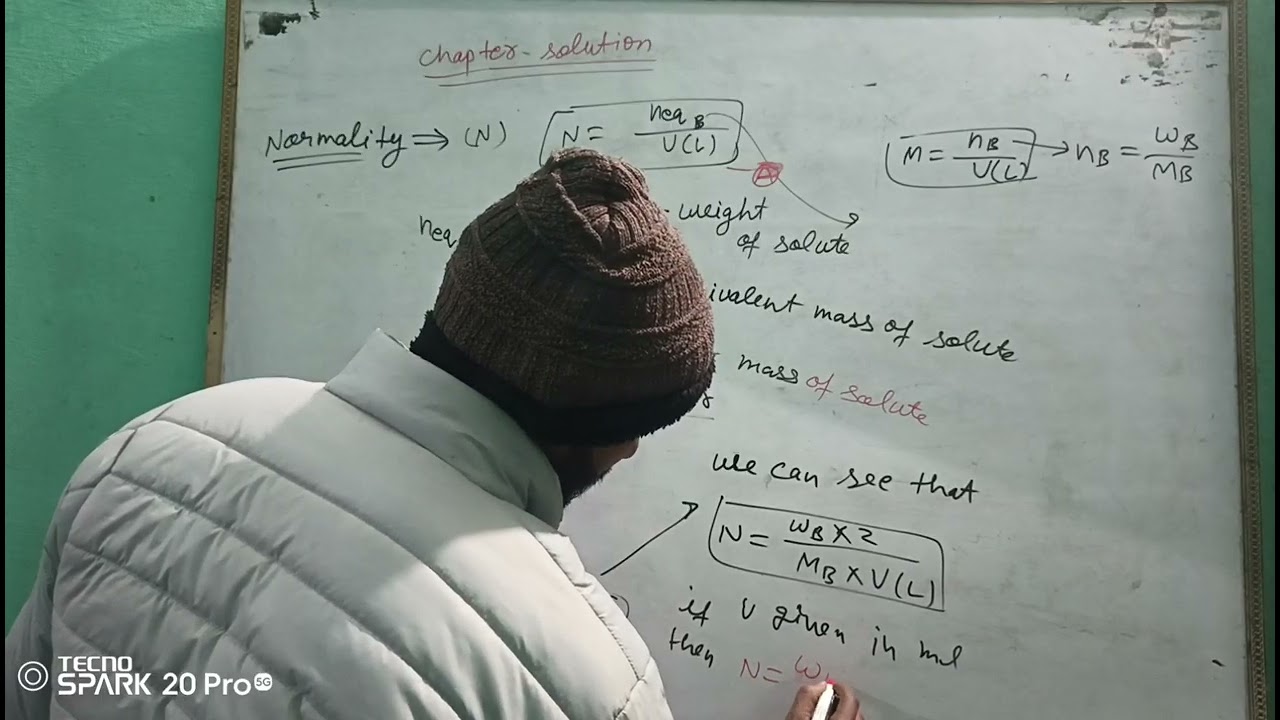 chapter-solution
Normality ⇒ (N) N = neqB / V(L)
M = nB / V(L) → nB = WB / MB
A
neq weight
of solute
ivalent mass of solute
mass of solute
we can see that
N = WB × Z / MB × V(L)
if V given in ml
then N = W
TECNO
SPARK 20 Pro 5G